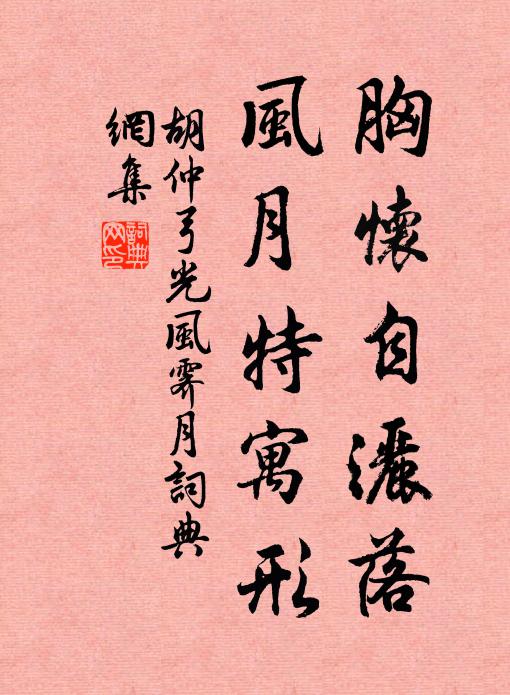 胸懷自灑落
風月特寓形
胡仲弓光風霽月詞典
網集
詞典網印